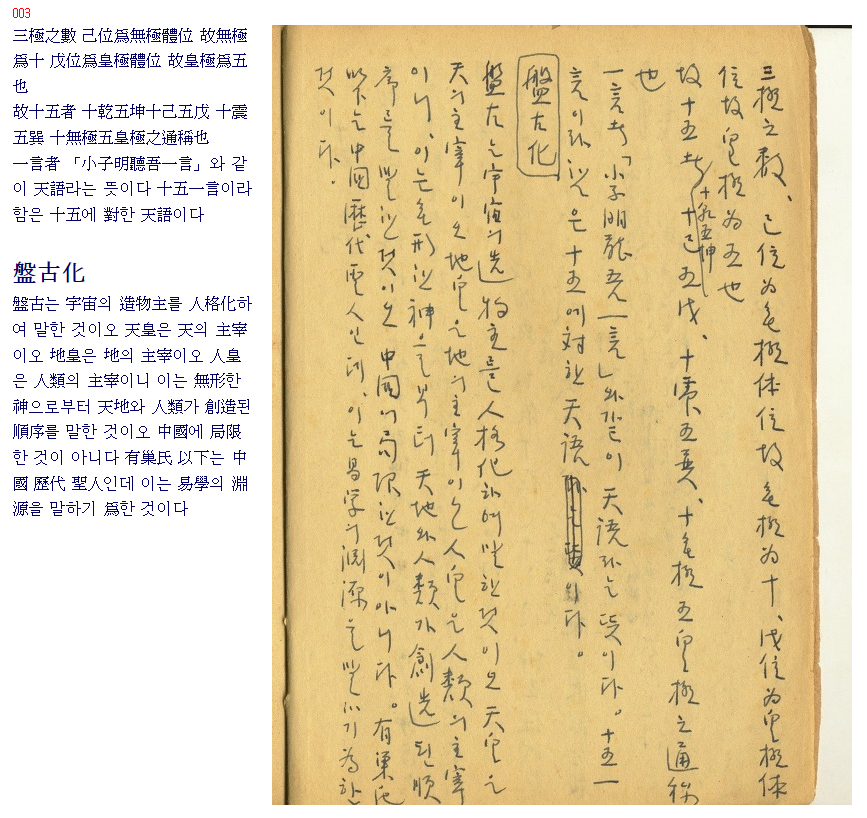 003
三極之數 己位爲無極體位 故無極
爲十 戊位爲皇極體位 故皇極爲五
也
故十五者 十乾五坤十己五戊 十震
五巽 十無極五皇極之通稱也
一言者 「小子明聽吾一言」와 같
이 天語라는 뜻이다 十五一言이라
함은 十五에 對한 天語이다
盤古化
盤古는 宇宙의 造物主를 人格化하
여 말한 것이오 天皇은 天의 主宰
이오 地皇은 地의 主宰이오 人皇
은 人類의 主宰이니 이는 無形한
神으로부터 天地와 人類가 創造된
順序를 말한 것이오 中國에 局限
한 것이 아니다 有巢氏 以下는 中
國 歷代 聖人인데 이는 易學의 淵
源을 말하기 爲한 것이다
三極之数、己位为無極体位故無極为十、戊位为皇極体
位故皇極为五也
故十五者 十乾五坤 十己五戊、十震五巽、十無極五皇極之通称
也
一言者「小子明聽吾一言」와같이 天語라는 뜻이다。十五一
言이라함은 十五에対한 天語이다。
盤古化
盤古는宇宙의造物主를人格化하여말한것이오 天皇은
天의主宰이오地皇은地의主宰이오人皇은人類의主宰
이니、이는無形한神으로부터天地와人類가創造된順
序를말한것이오 中國에局限한것이아니다。有巢氏
以下는中國歷代聖人인데、이는易学의淵源을말하기为한
것이다。